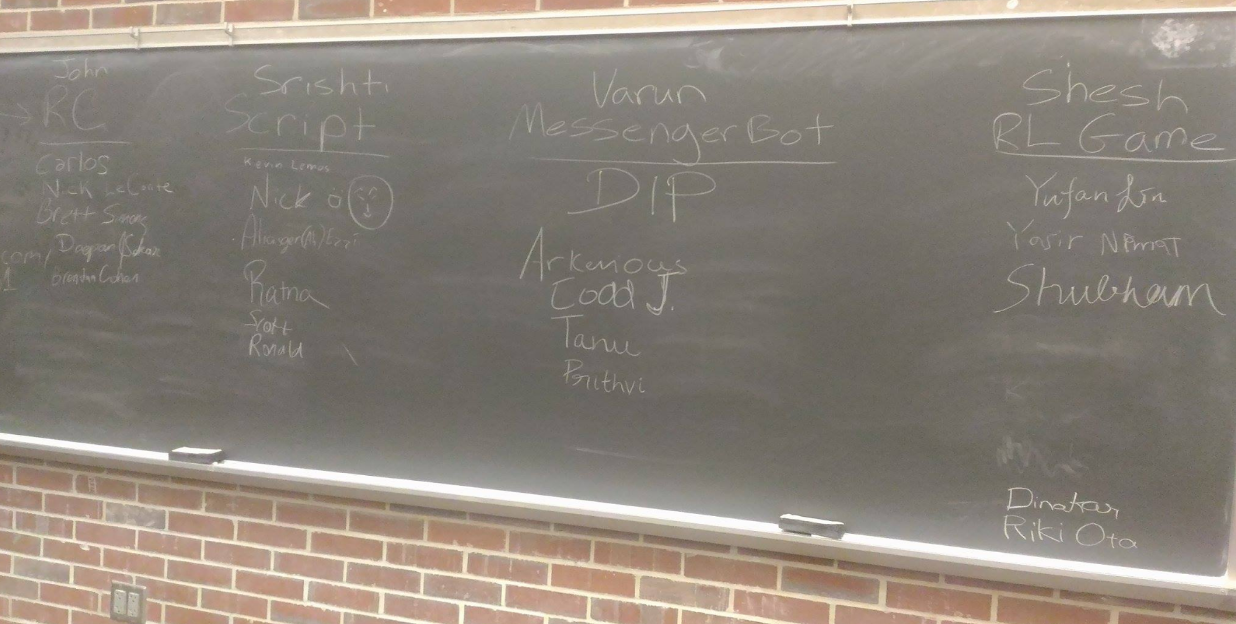 John
RC
Carlos
Nick LeConte
Brett
Brendan Cohen
Srishti
Script
Kevin Lemos
Nick
Ratna
Scott
Ronald
Varun
MessengerBot
DIP
Arkenious
Codd J.
Tanu
Prithvi
Shesh
RL Game
Yufan Lin
Yasir Nemat
Shubham
Dinakar
Riki Ota